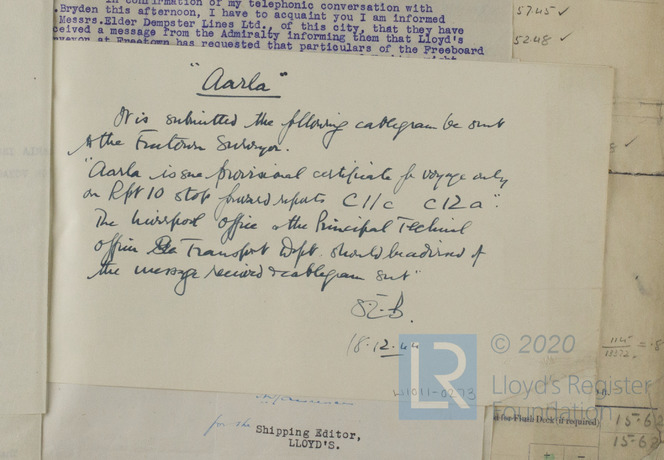 In confirmation of my telephonic conversation with
.Bryden this afternoon, I have to acquaint you I am informed
Messrs.Elder Dempster Lines Ltd., of this city, that they have
ceived a message from the Admiralty informing them that Lloyd's
veyor at Freetown has requested that particulars of the Freeboard
57.45 ✓
52.48 ✓
"Aarla"
It is submitted the following cablegram be sent
to the Freetown Surveyor.
"Aarla issue provisional certificate for voyage only
on Rpt 10 stop forward reports C11c C12a".
The Liverpool Office & the Principal Technical
Officer Sea Transport Dept. should be advised of
the message received & cablegram sent"
18.12.44
W1011-0273
LR
© 2020
Lloyd's Register
Foundation
for the Shipping Editor,
LLOYD'S.
for Flush Deck (if required)
15.62
15.62